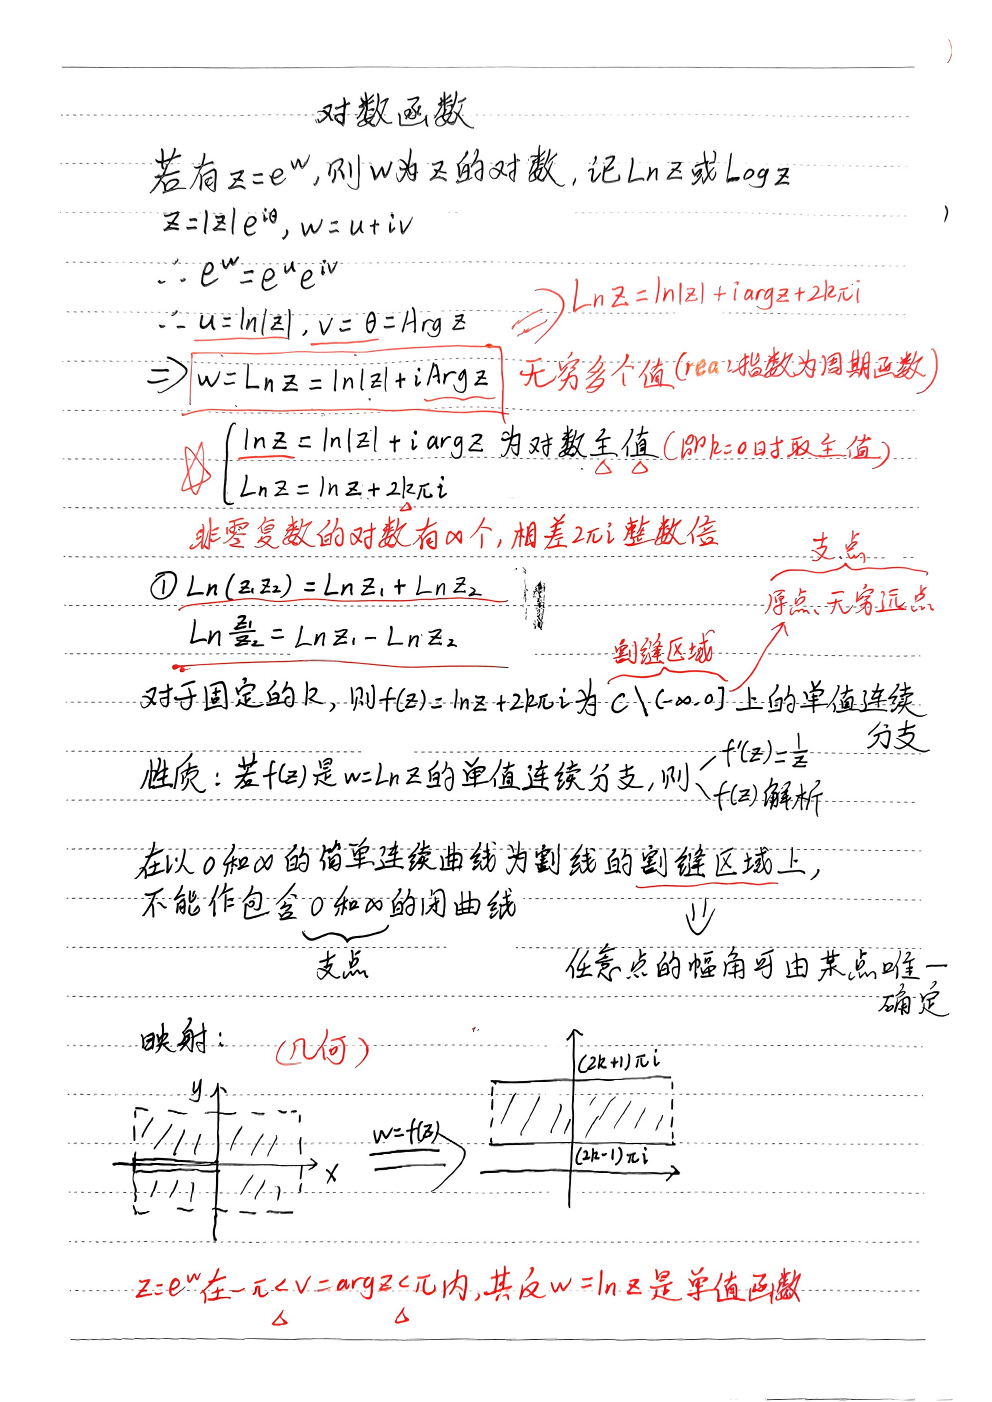 对数函数
若有z=e^w,则w为z的对数,记Lnz或Logz
z=|z|e^{iθ}, w=u+iv
∴ e^w=e^u e^{iv}
∴ u=ln|z|, v=θ=Arg z
⇒ Ln z=ln|z|+i argz+2kπi
⇒ w=Ln z=ln|z|+i Arg z 无穷多个值(rea:指数为周期函数)
ln z=ln|z|+i argz 为对数主值(即k=0时取主值)
Ln z=ln z+2kπi
非零复数的对数有∞个,相差2πi整数倍
支点
① Ln(z₁z₂)=Lnz₁+Lnz₂
原点、无穷远点
Ln z₁/z₂=Lnz₁-Lnz₂
割缝区域
对于固定的k,则f(z)=lnz+2kπi为C\(-∞.0]上的单值连续
分支
性质:若f(z)是w=Lnz的单值连续分支,则 f'(z)=1/z
f(z)解析
在以0和∞的简单连续曲线为割线的割缝区域上,
不能作包含0和∞的闭曲线
⇓
支点
任意点的幅角可由某点唯一
确定
映射: (几何)
(2k+1)πi
y
w=f(z)
(2k-1)πi
x
z=e^w在-π<v=argz<π内,其反w=lnz是单值函数